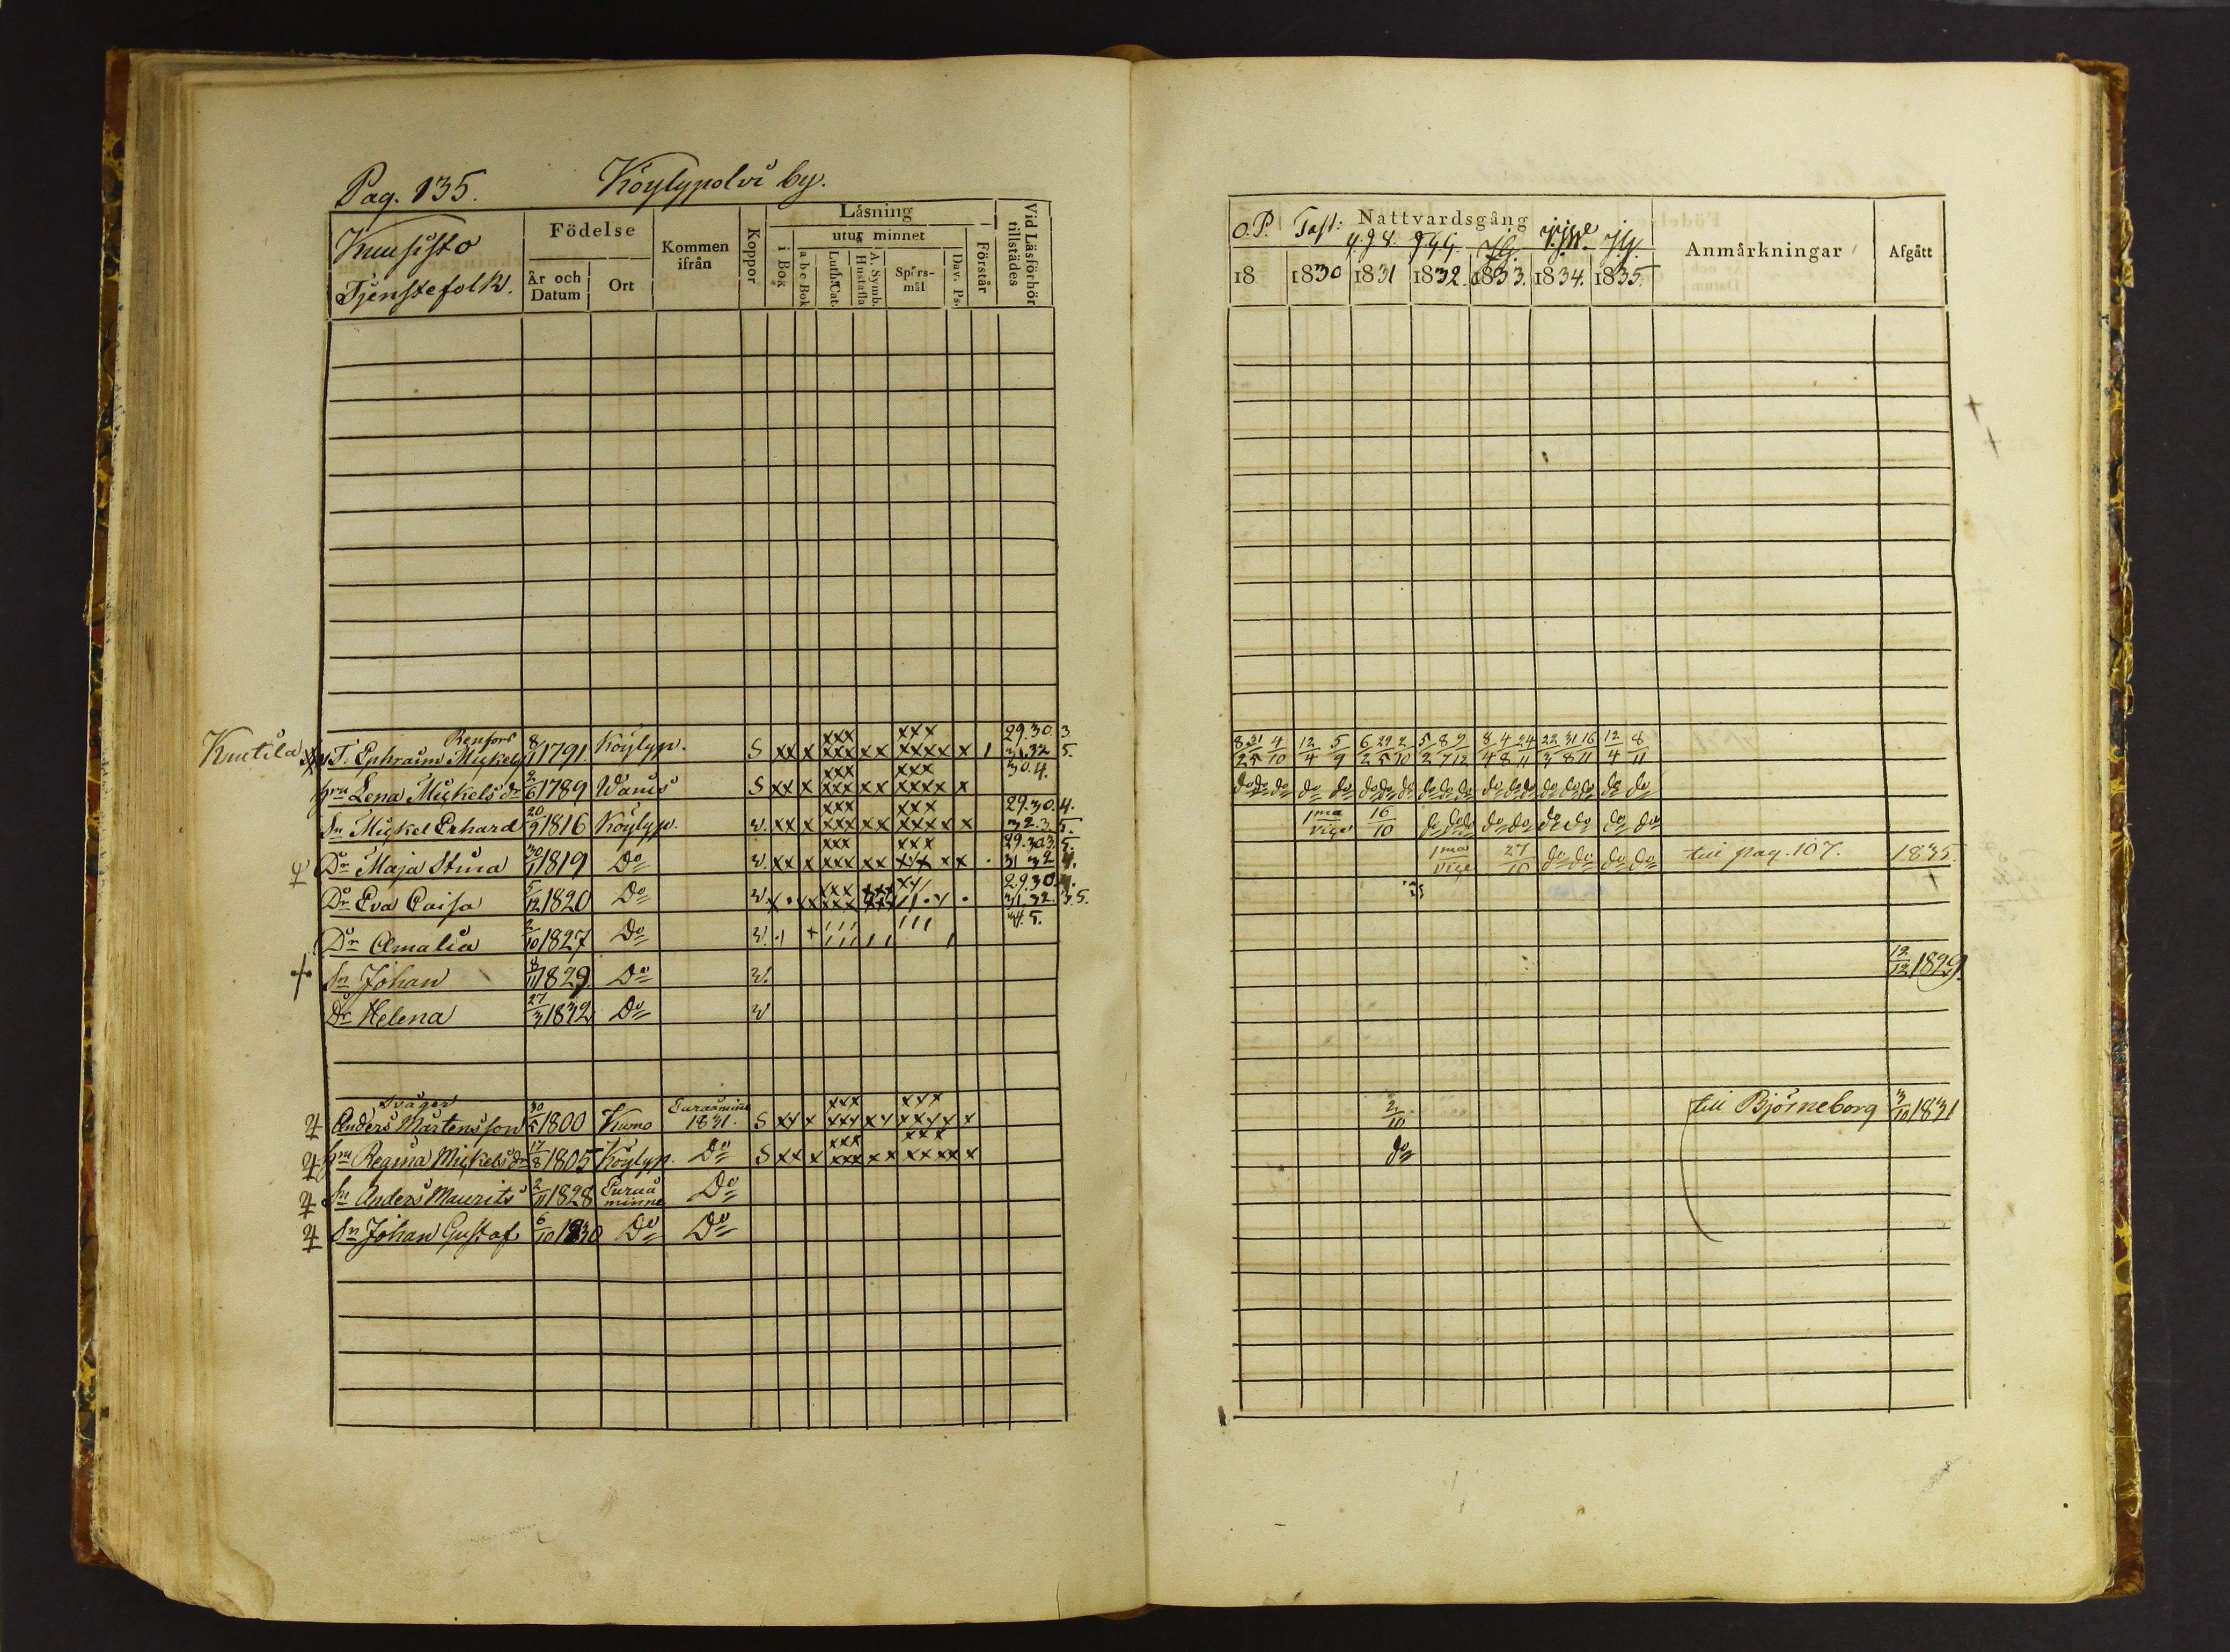 Pag. 135. Köylypolvi by.
Knusisto
Tjenstefolk.
Födelse
År och Datum
Ort
Kommen ifrån
Koppor
Läsning
utur minnet
i Bok
a b c Bok
Luth. Cat.
A. Symb. Hustafla
Spörs-mål
Dav. Ps.
Förstår
Vid Läsförhör tillstädes
O.P. Nattvardsgång
18 1830 1831 1832. 1833. 1834. 1835.
Anmärkningar
Afgått
Renfors
Knutila T. Ephraim Mickels 8 1791. Köylyp. S xx x xxx xxx xx xxx xxxx x 1 29.30.3 31.32 5.
8/2 31/5 4/10 12/4 5/9 6/2 29/5 2/10 5/2 8/7 9/12 8/4 4/8 24/11 22/3 31/8 16/11 12/4 8/11
Hru Lena Mickelsdr 2/6 1789 Wänis S xx x xxx xxx xx xxx xxxx x 30.4.
do do do do do do do do do do do do do do do do do do
Sn Mickel Erhard 20/9 1816 Köylyp. v. xx x xxx xxx xx xxx xxxx x 29.30.4. 32.3.5.
1ma vice 16/10 do do do do do do do do do
Dr Maja Stina 30/7 1819 Do v. xx x xxx xxx xx xxx xxx xx . 29.30.3.5. 31 32 4.
1ma vice 27/10 do do do do till pag. 107. 1835.
Dr Eva Caisa 5/12 1820 Do v. 29.30.4. 31.32.3.5.
Dr Amalia 2/10 1827 Do v. 34.5.
Sn Johan 8/11 1829. Do v. 19/12 1829.
Dr Helena 27/3 1832 Do v
Svåger
Anders Mårtensson 30/5 1800 Kumo Euraåminne 1831. S xx x xxx xxx xx xxx xxxx x
2/10 till Björneborg 3/10 1831
Hru Regina Mickelsdr 17/8 1805 Köylyp. Do S xx x xxx xxx xx xxx xxxx x
do
Sn Anders Maurits 2/11 1828 Euraå minne Do
Sn Johan Gustaf 6/10 1830 Do Do